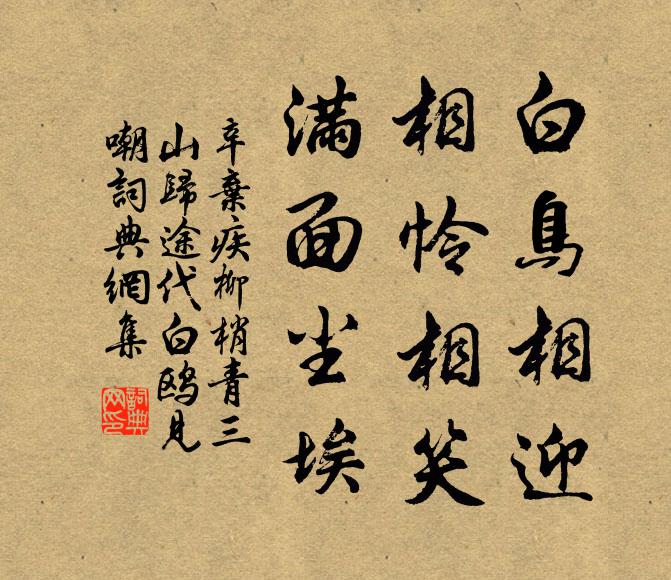 白鳥相迎
相怜相笑
满面尘埃
辛棄疾柳梢青三
山歸途代白鸥見
嘲詞典網集
詞典
网印